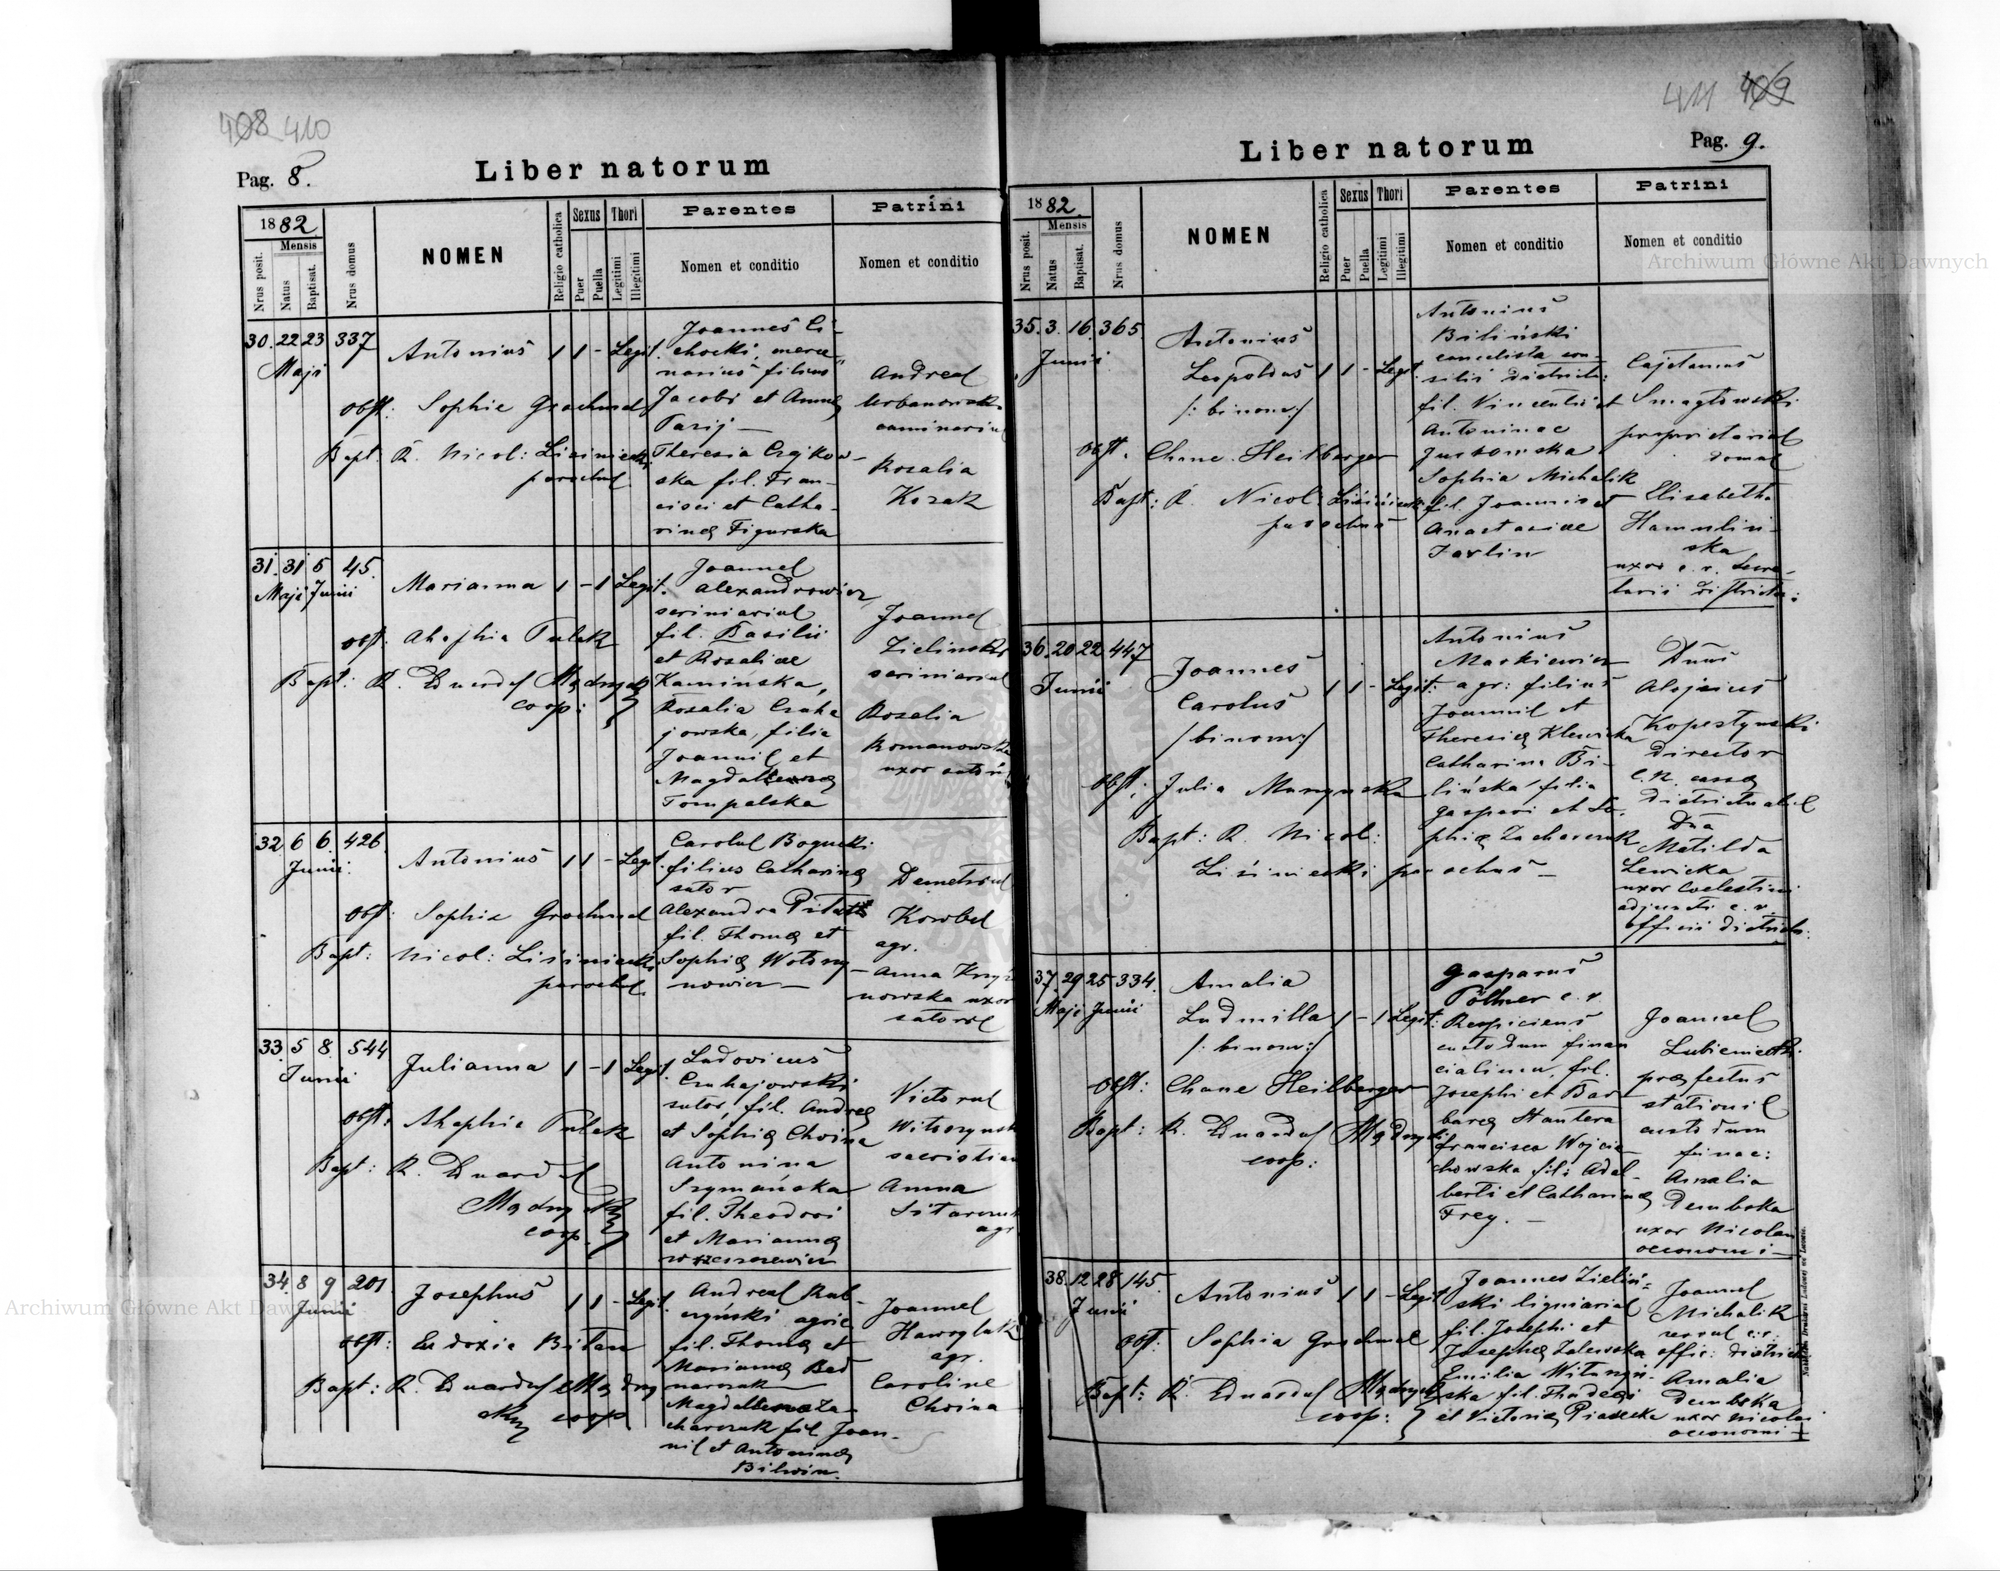 408 410
Pag. 8.
Liber natorum
1882
Nrus posit.
Mensis
Natus
Baptisat.
Nrus domus
NOMEN
Religio catholica
Sexus
Puer
Puella
Thori
Legitimi
Illegitimi
Parentes
Nomen et conditio
Patrini
Nomen et conditio
30. 22 23 337
Maji
Antonius 1 1 - Legit.
obst: Sophie Grochmal
Bapt: R. Nicol: Lisiniecki
parochus
Joannes Ci-
chocki, merce-
narius filius
Jacobi et Annæ
Pazij —
Theresia Czajkow-
ska fil. Fran-
cisci et Catha-
rinæ Figurska
Andreas
Urbanowski
caminarius
Rosalia
Kozak
31. 31 5 45.
Maji Junii
Marianna 1 - 1 Legit.
obst. Ahaphia Pulak
Bapt: R. Eduardus Mądrzak
coop:
Joannes
Alexandrowicz
scriniarius
fil. Basilii
et Rosaliae
Kamińska,
Rosalia Czaha
jowska, filia
Joannis et
Magdalenæ
Tompalska
Joannes
Zielinski
scriniarius
Rosalia
Romanowska
uxor sutoris
32 6 6. 426.
Junii.
Antonius 1 1 - Legit.
obst: Sophia Grochmal
Bapt: Nicol: Lisiniecki
parochus.
Carolus Bogucki
filius Catharinæ
sutor
Alexandra
fil. Thomæ et
Sophiæ
nowicz —
Demetrius
Korobel
agr.
Anna
nowska uxor
sutoris
33. 5 8. 544
Junii
Julianna 1 - 1 Legit.
obst: Ahaphia Pulak
Bapt: R. Eduardus
coop.
Ludovicus
Czahajowski
sutor, fil. Andreæ
et Sophiæ Choina
Antonina
Szymańska
fil. Theodori
et Mariannæ
Victorus
sacristian
Anna
agr.
34. 8 9 201
Junii
Josephus 1 1 - Legit.
obst: Eudoxia Bilan
Bapt: R. Eduardus Mądrzak
coop
Andreas Rab-
czyński agric
fil. Thomæ et
Mariannæ Bed
narczuk
Magdalena Za-
charczuk fil Joan-
nis et Antoninæ
Bilwin.
Joannes
Hawrylak
agr.
Caroline
Choina
411 409
Liber natorum
Pag. 9.
1882
Nrus posit.
Mensis
Natus
Baptisat.
Nrus domus
NOMEN
Religio catholica
Sexus
Puer
Puella
Thori
Legitimi
Illegitimi
Parentes
Nomen et conditio
Patrini
Nomen et conditio
35. 3. 16. 365.
Junii
Antonius
Leopoldus 1 1 - Legit.
/: binom:/
obst. Chane Heilberger
Bapt: R. Nicol: Lisiniecki
parochus
Antonius
Biliński
cancelista con-
silii district:
fil. Vincentii et
Antoninae
Jurkowska
Sophia Michalik
fil. Joannis et
Anastasiae
Pavlin
Cajetanus
Smagłowski
proprietarius
domus
Elisabetha
Hamulin-
ska
uxor c. r. Secre-
tarii district:
36. 20 22 447
Junii
Joannes
Carolus 1 1 - Legit:
/ binom:/
obst: Julia Murynska
Bapt: R. Nicol:
Lisiniecki parochus —
Antonius
Markiewicz
agr: filius
Joannis et
Theresiæ Klewicka
Catharina Bi-
lińska filia
Gaspari et So-
phiæ Zacharczuk
Dnus
Alojsius
Kopestynski
director
c. r. cassæ
districtualis
Dna
Matilda
Lewicka
uxor Coelestini
adjuncti c. r.
officii district:
37. 29 25 334.
Maji Junii
Amalia
Ludmilla 1 - 1 Legit:
/: binom:/
obst: Chane Heilberger
Bapt: R. Eduardus Mądrzak
coop:
Gasparus
Pöltner c. r.
Respiciens
custodum finan
cialium, fil.
Josephi et Bar-
baræ Hantera
Francisca Wojcie-
chowska fil: Adal-
berti et Catharinæ
Frey. —
Joannes
Lubieniecki
præfectus
stationis
custodum
finac:
Amalia
Dembska
uxor Nicolai
oeconomi —
38. 12 28 145.
Junii
Antonius 1 1 - Legit
obst: Sophia Grochmal
Bapt: R. Eduardus Mądrzak
coop:
Joannes Zieliń-
ski ligniarius
fil. Josephi et
Josephæ Zalewska
Emilia
ska fil. Thadæi
et Victoriæ Piasecka
Joannes
Michalik
c: r:
offic: district
Amalia
Dembska
uxor Nicolai
oeconomi —
Archiwum Główne Akt Dawnych
Archiwum Główne Akt Dawnych